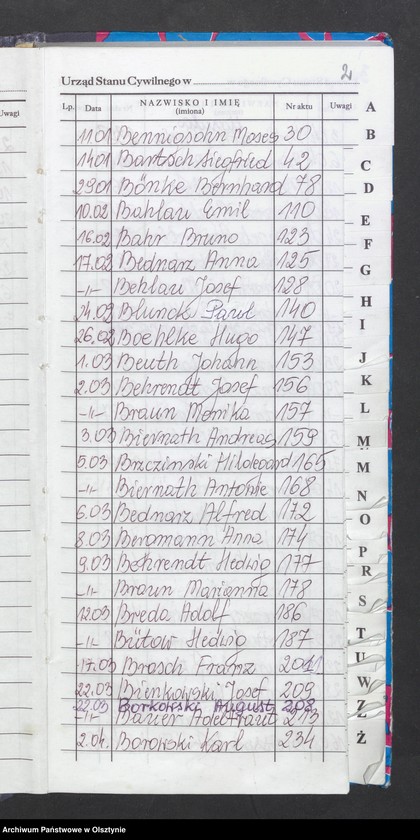 2
Urząd Stanu Cywilnego w
Lp. Data NAZWISKO I IMIĘ (imiona) Nr aktu Uwagi
11.01 Benniosohn Moses 30
14.01 Bartsch Siegfried 42
29.01 Bönke Bernhard 78
10.02 Bahlau Emil 110
16.02 Bahr Bruno 123
17.02 Bednarz Anna 125
-"- Behlau Josef 128
24.02 Blunck Paul 140
26.02 Boehlke Hugo 147
1.03 Beuth Johann 153
2.03 Behrendt Josef 156
-"- Braun Monika 157
3.03 Biernath Andreas 159
5.03 Brzczinski Hildegard 165
-"- Biernath Antonie 168
6.03 Bednarz Alfred 172
8.03 Bergmann Anna 174
9.03 Behrendt Hedwig 177
-"- Braun Marianna 178
12.03 Breda Adolf 186
-"- Bütow Hedwig 187
17.03 Brosch Franz 201
22.03 Bienkowski Josef 209
22.03 Borkowski August 208
-"- Bauer Adeltraut 213
2.04. Borowski Karl 234
A
B
C
D
E
F
G
H
I
J
K
L
M
M
N
O
P
R
S
T
U
W
Z
Ż
Uwagi
Archiwum Państwowe w Olsztynie